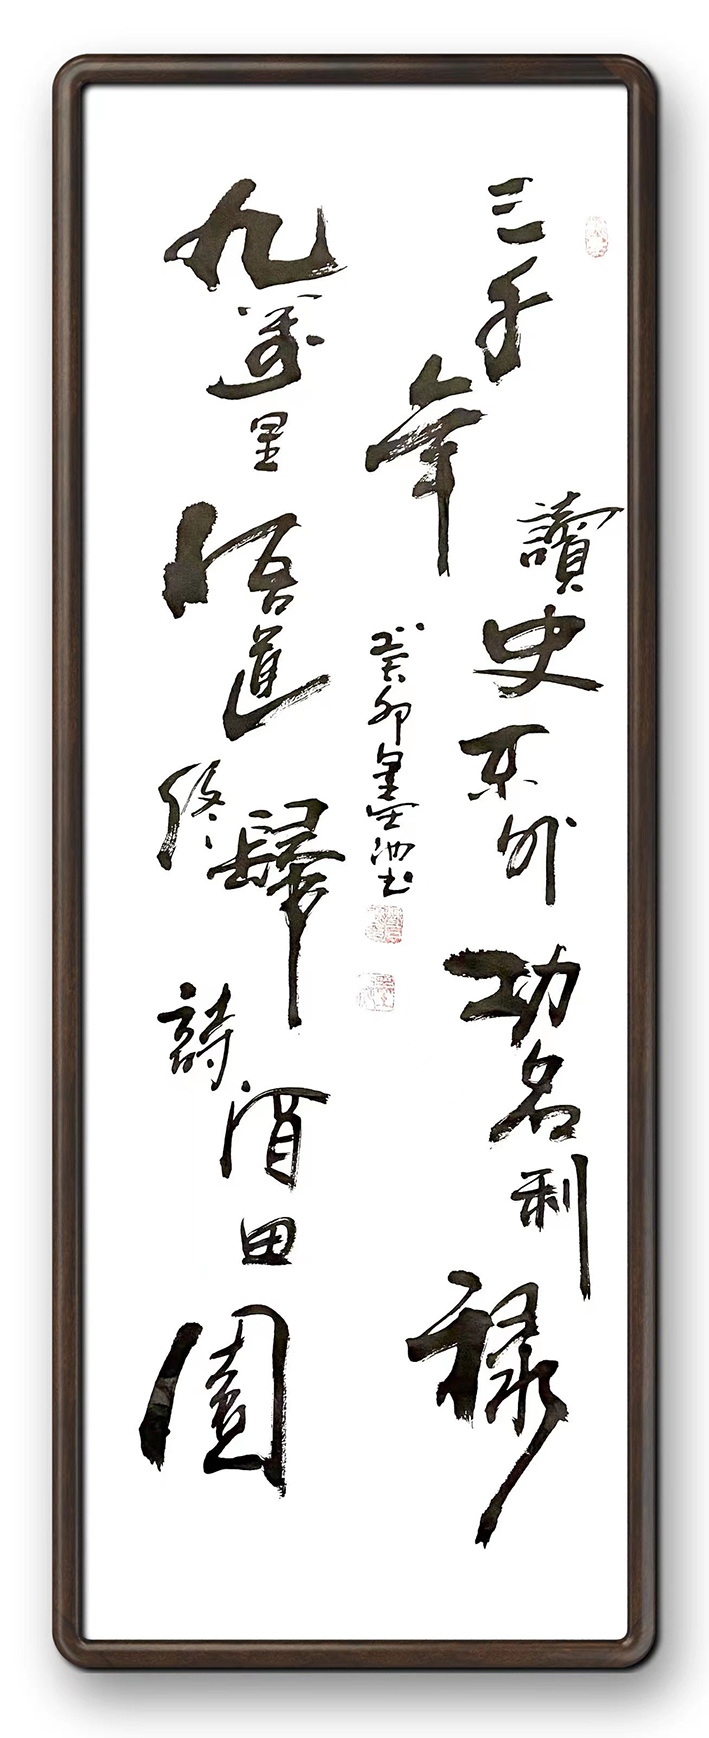 三千年讀史不外功名利祿
九萬里悟道終歸詩酒田園
癸卯墨池书